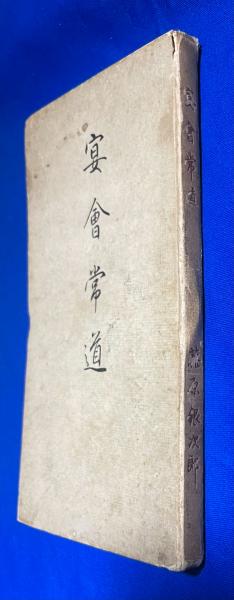 宴會常道
宴會常道
藤原銀次郎